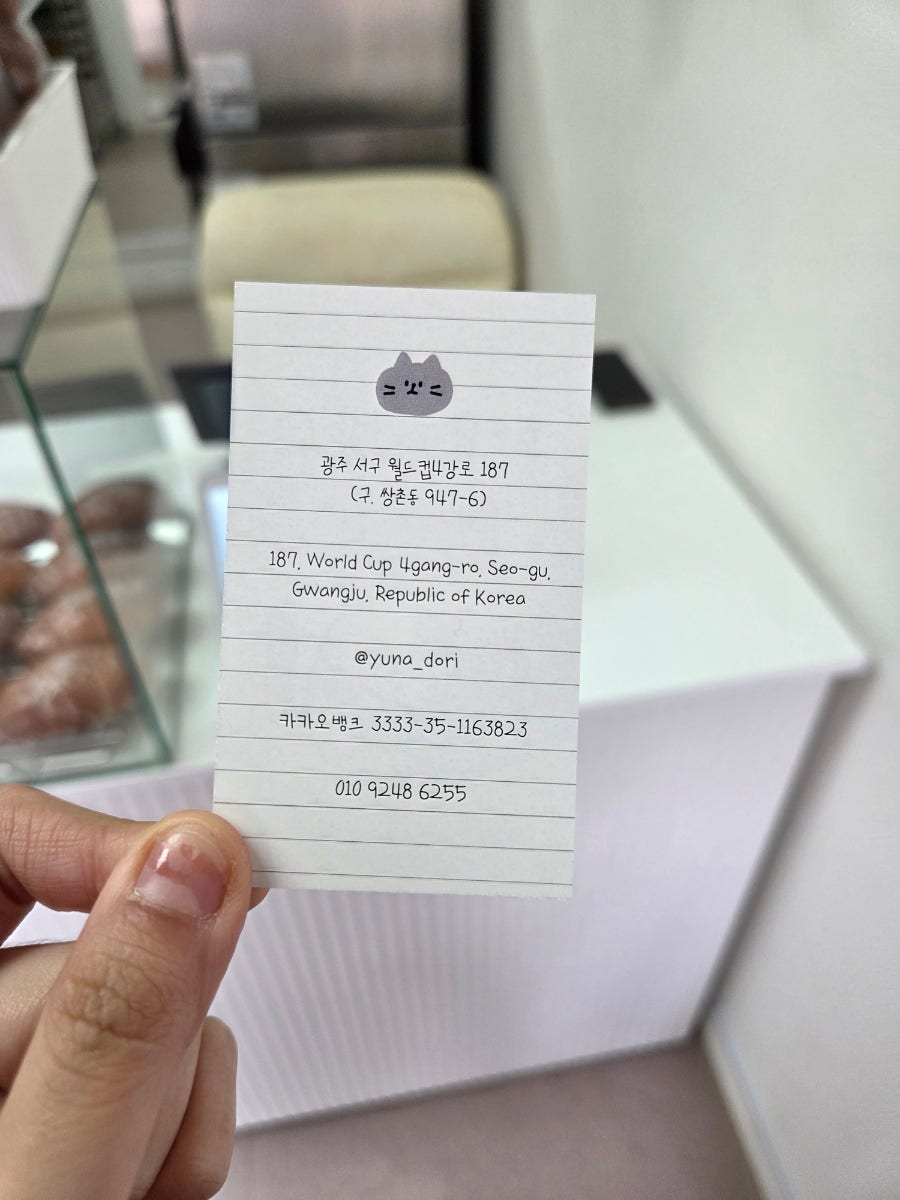 광주 서구 월드컵4강로 187
(구. 쌍촌동 947-6)
187, World Cup 4gang-ro, Seo-gu,
Gwangju, Republic of Korea
@yuna_dori
카카오뱅크 3333-35-1163823
010 9248 6255